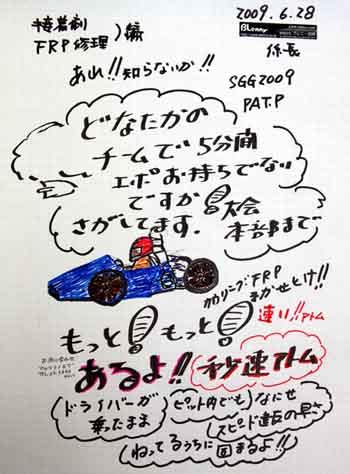 接着剤
FRP修理 ) 編
2009.6.28
BLenny
係長
あれ!!知らないか!!
SGG2009
PAT.P
どなたかの
チームで5分間
エポお持ちでない
ですか!大会
さがしてます. 本部まで
カウリングFRP
まかせとけ!!
速い!!アトム
もっと!もっと!
あるよ!! 秒速アトム
ドライバーが
乗ったまま
ピット内でも)なにせ
スピード違反の早さ
ねってるうちに固まるよ!!